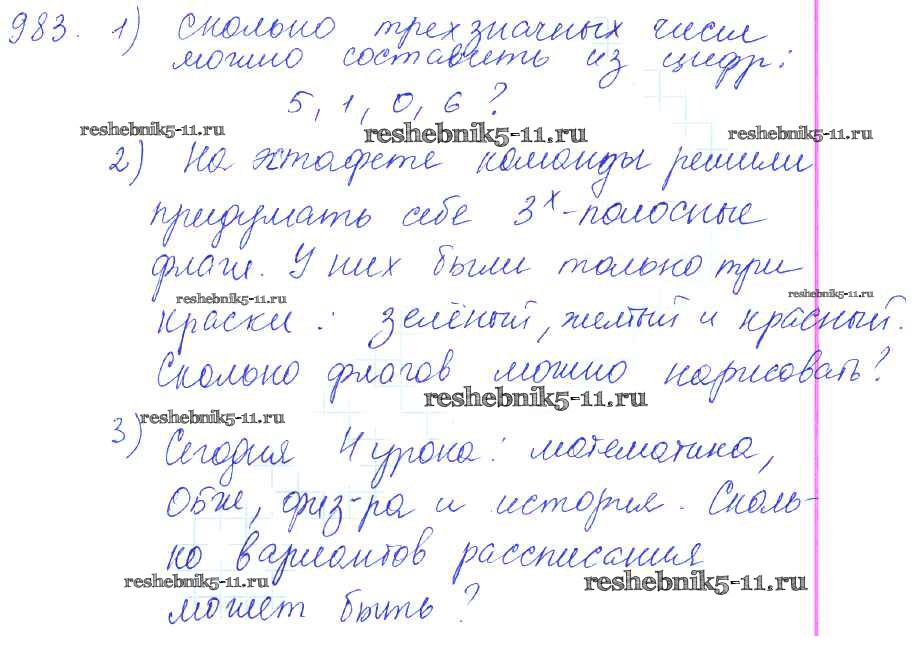 983. 1) Сколько трехзначных чисел
можно составить из цифр:
5, 1, 0, 6?
reshebnik5-11.ru reshebnik5-11.ru reshebnik5-11.ru
2) На эстафете команды решили
придумать себе 3х-полосные
флаги. У них были только три
reshebnik5-11.ru reshebnik5-11.ru
краски: зелёный, желтый и красный.
Сколько флагов можно нарисовать?
reshebnik5-11.ru
reshebnik5-11.ru
3) Сегодня 4 урока: математика,
Обж, физ-ра и история. Сколь-
ко вариантов рассписания
reshebnik5-11.ru reshebnik5-11.ru
может быть?